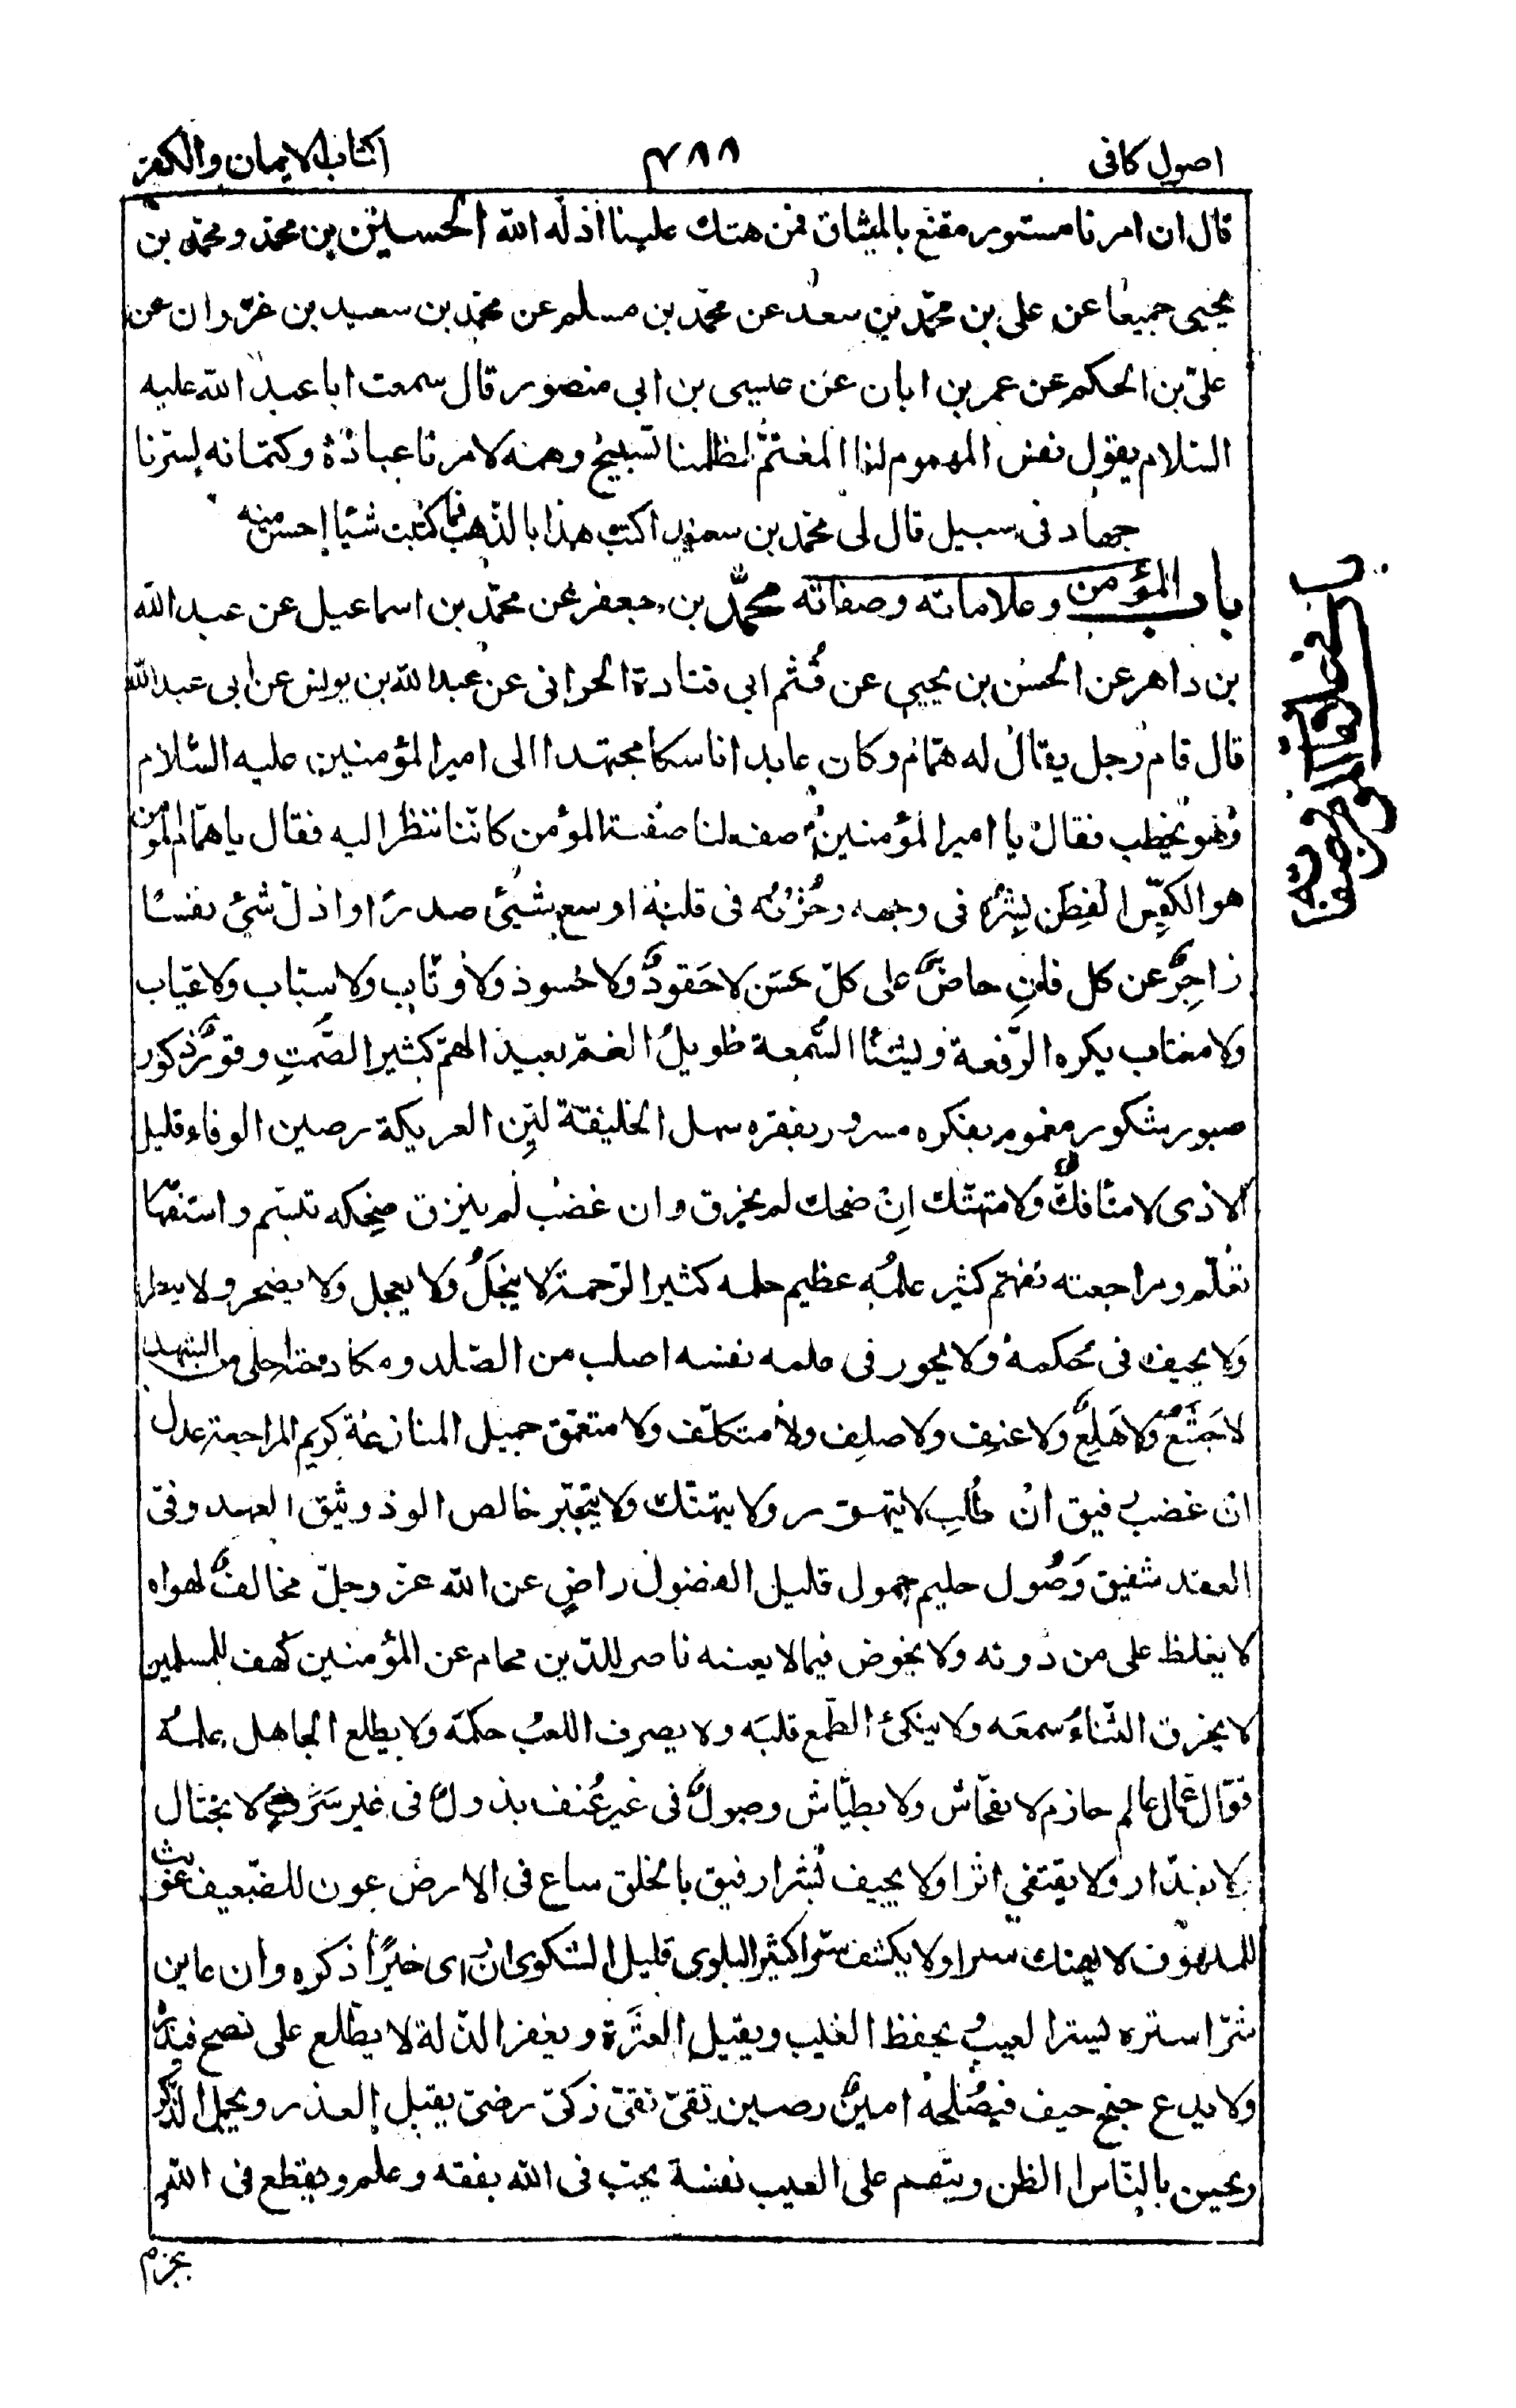 اصول كافى
۴۸۸
كتاب الايمان والكفر
قال ان امرنا مستور مقنع بالميثاق فمن هتك علينا اذله الله الحسين بن محمد ومحمد بن
يحيى جميعا عن على بن محمد بن سعد عن محمد بن مسلم عن محمد بن سعيد بن غزوان عن
على بن الحكم عن عمر بن ابان عن عيسى بن ابى منصور قال سمعت ابا عبد الله عليه
السلام يقول نفس المهموم لنا المغتم لظلمنا تسبيح وهمه لامرنا عبادة وكتمانه لسرنا
جهاد فى سبيل قال لى محمد بن سعيد اكتب هذا بالذهب فما كتبت شيئا احسن منه
باب المؤمن وعلاماته وصفاته محمد بن جعفر عن محمد بن اسماعيل عن عبد الله
بن داهر عن الحسن بن يحيى عن قُثم ابى قتادة الحرانى عن عبد الله بن يونس عن ابى عبد الله
قال قام رجل يقال له همّام وكان عابدا ناسكا مجتهدا الى امير المؤمنين عليه السّلام
وهو يخطب فقال يا امير المؤمنين صف لنا صفة المؤمن كانّنا ننظر اليه فقال يا همّام المؤمن
هو الكيّس الفطن بشره فى وجهه وحُزنُه فى قلبه اوسع شىئ صدرًا واذلّ شىئ نفسًا
زاجرٌ عن كل فانٍ حاضٌّ على كلّ حسن لا حَقودٌ ولا حسود ولا وثّاب ولا سبّاب ولا عيّاب
ولا مغتاب يكره الرّفعة ويشنأ السّمعة طويلُ الغمّ بعيد الهمّ كثير الصّمتِ وقورٌ ذكور
صبور شكور مغموم بفكره مسرور بفقره سهل الخليقة ليّن العريكة رصين الوفاء قليل
الاذى لا متافكٌ ولا متهتّك انْ ضحك لم يخرق وان غضب لم ينزق ضحكه تبسّم واستفها
تعلّم ومراجعته تفهّم كثير علمُه عظيم حلمه كثير الرّحمة لا يبخَلُ ولا يعجل ولا يضجر ولا يبطر
ولا يحيف فى حكمه ولا يجور فى علمه نفسه اصلب من الصّلد ومكادحته احلى من الشهد
لا جَشِعٌ ولا هَلِعٌ ولا عنِف ولا صلِف ولا متكلّف ولا متعمّق جميل المنازعة كريم المراجعة عدل
ان غضب رفيق انْ طُلب لا يتهور ولا يتهتّك ولا يتجبّر خالص الود وثيق العهد وفىّ
العقد شفيق وَصُول حليم حمول قليل الفضول راضٍ عن الله عزّ وجلّ مخالفٌ لهواه
لا يغلظ على من دونه ولا يخوض فيما لا يعنيه ناصر للدّين محام عن المؤمنين كهف للمسلمين
لا يخرق الثناءُ سمعَه ولا ينكئ الطمع قلبَه ولا يصرف اللعبُ حكمَه ولا يطلع الجاهل علمَه
قوّال عمّال عالم حازم لا بفحّاش ولا بطيّاش وصولٌ فى غير عُنف بذولٌ فى غير سَرَفٍ لا بختال
لا بغدّار ولا يقتفى اثرا ولا يحيف بشرا رفيق بالخلق ساع فى الارض عون للضعيف غوث
للملهوف لا يهتك سترا ولا يكشف سرّا كثير البلوى قليل الشكوى ان راى خيرًا ذكره وان عاين
شرّا ستره يستر العيب ويحفظ الغيب ويقيل العثرة ويغفر الزلة لا يطّلع على نصح فيذره
ولا يدع جنح حيف فيصُلحه امينٌ رصين تقىّ نقىّ زكىّ رضىّ يقبل العذر ويجمل الذكر
ويحسن بالنّاس الظن ويتهم على العيب نفسه يحبّ فى الله بفقه وعلم ويقطع فى الله
بحزم